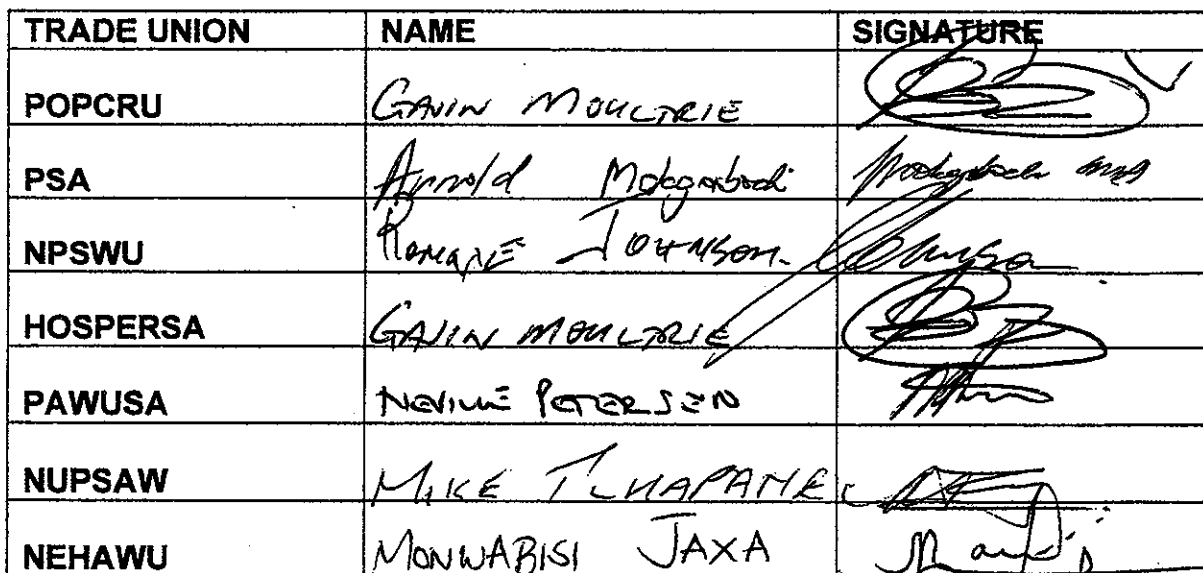 TRADE UNION NAME SIGNATURE
POPCRU GAVIN MOULTRIE
PSA Arnold
NPSWU JOHNSON Johnson
HOSPERSA GAVIN MOULTRIE
PAWUSA NEVILLE PETERSEN
NUPSAW MIKE TLHAPANE
NEHAWU MONWABISI JAXA